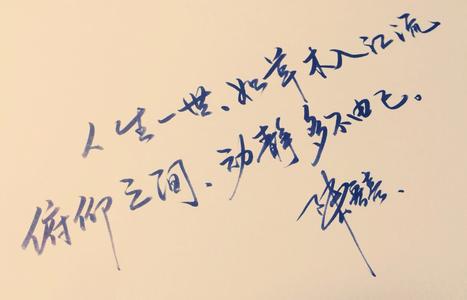 人生一世、如草木入江流
俯仰之间、动静多不由己。